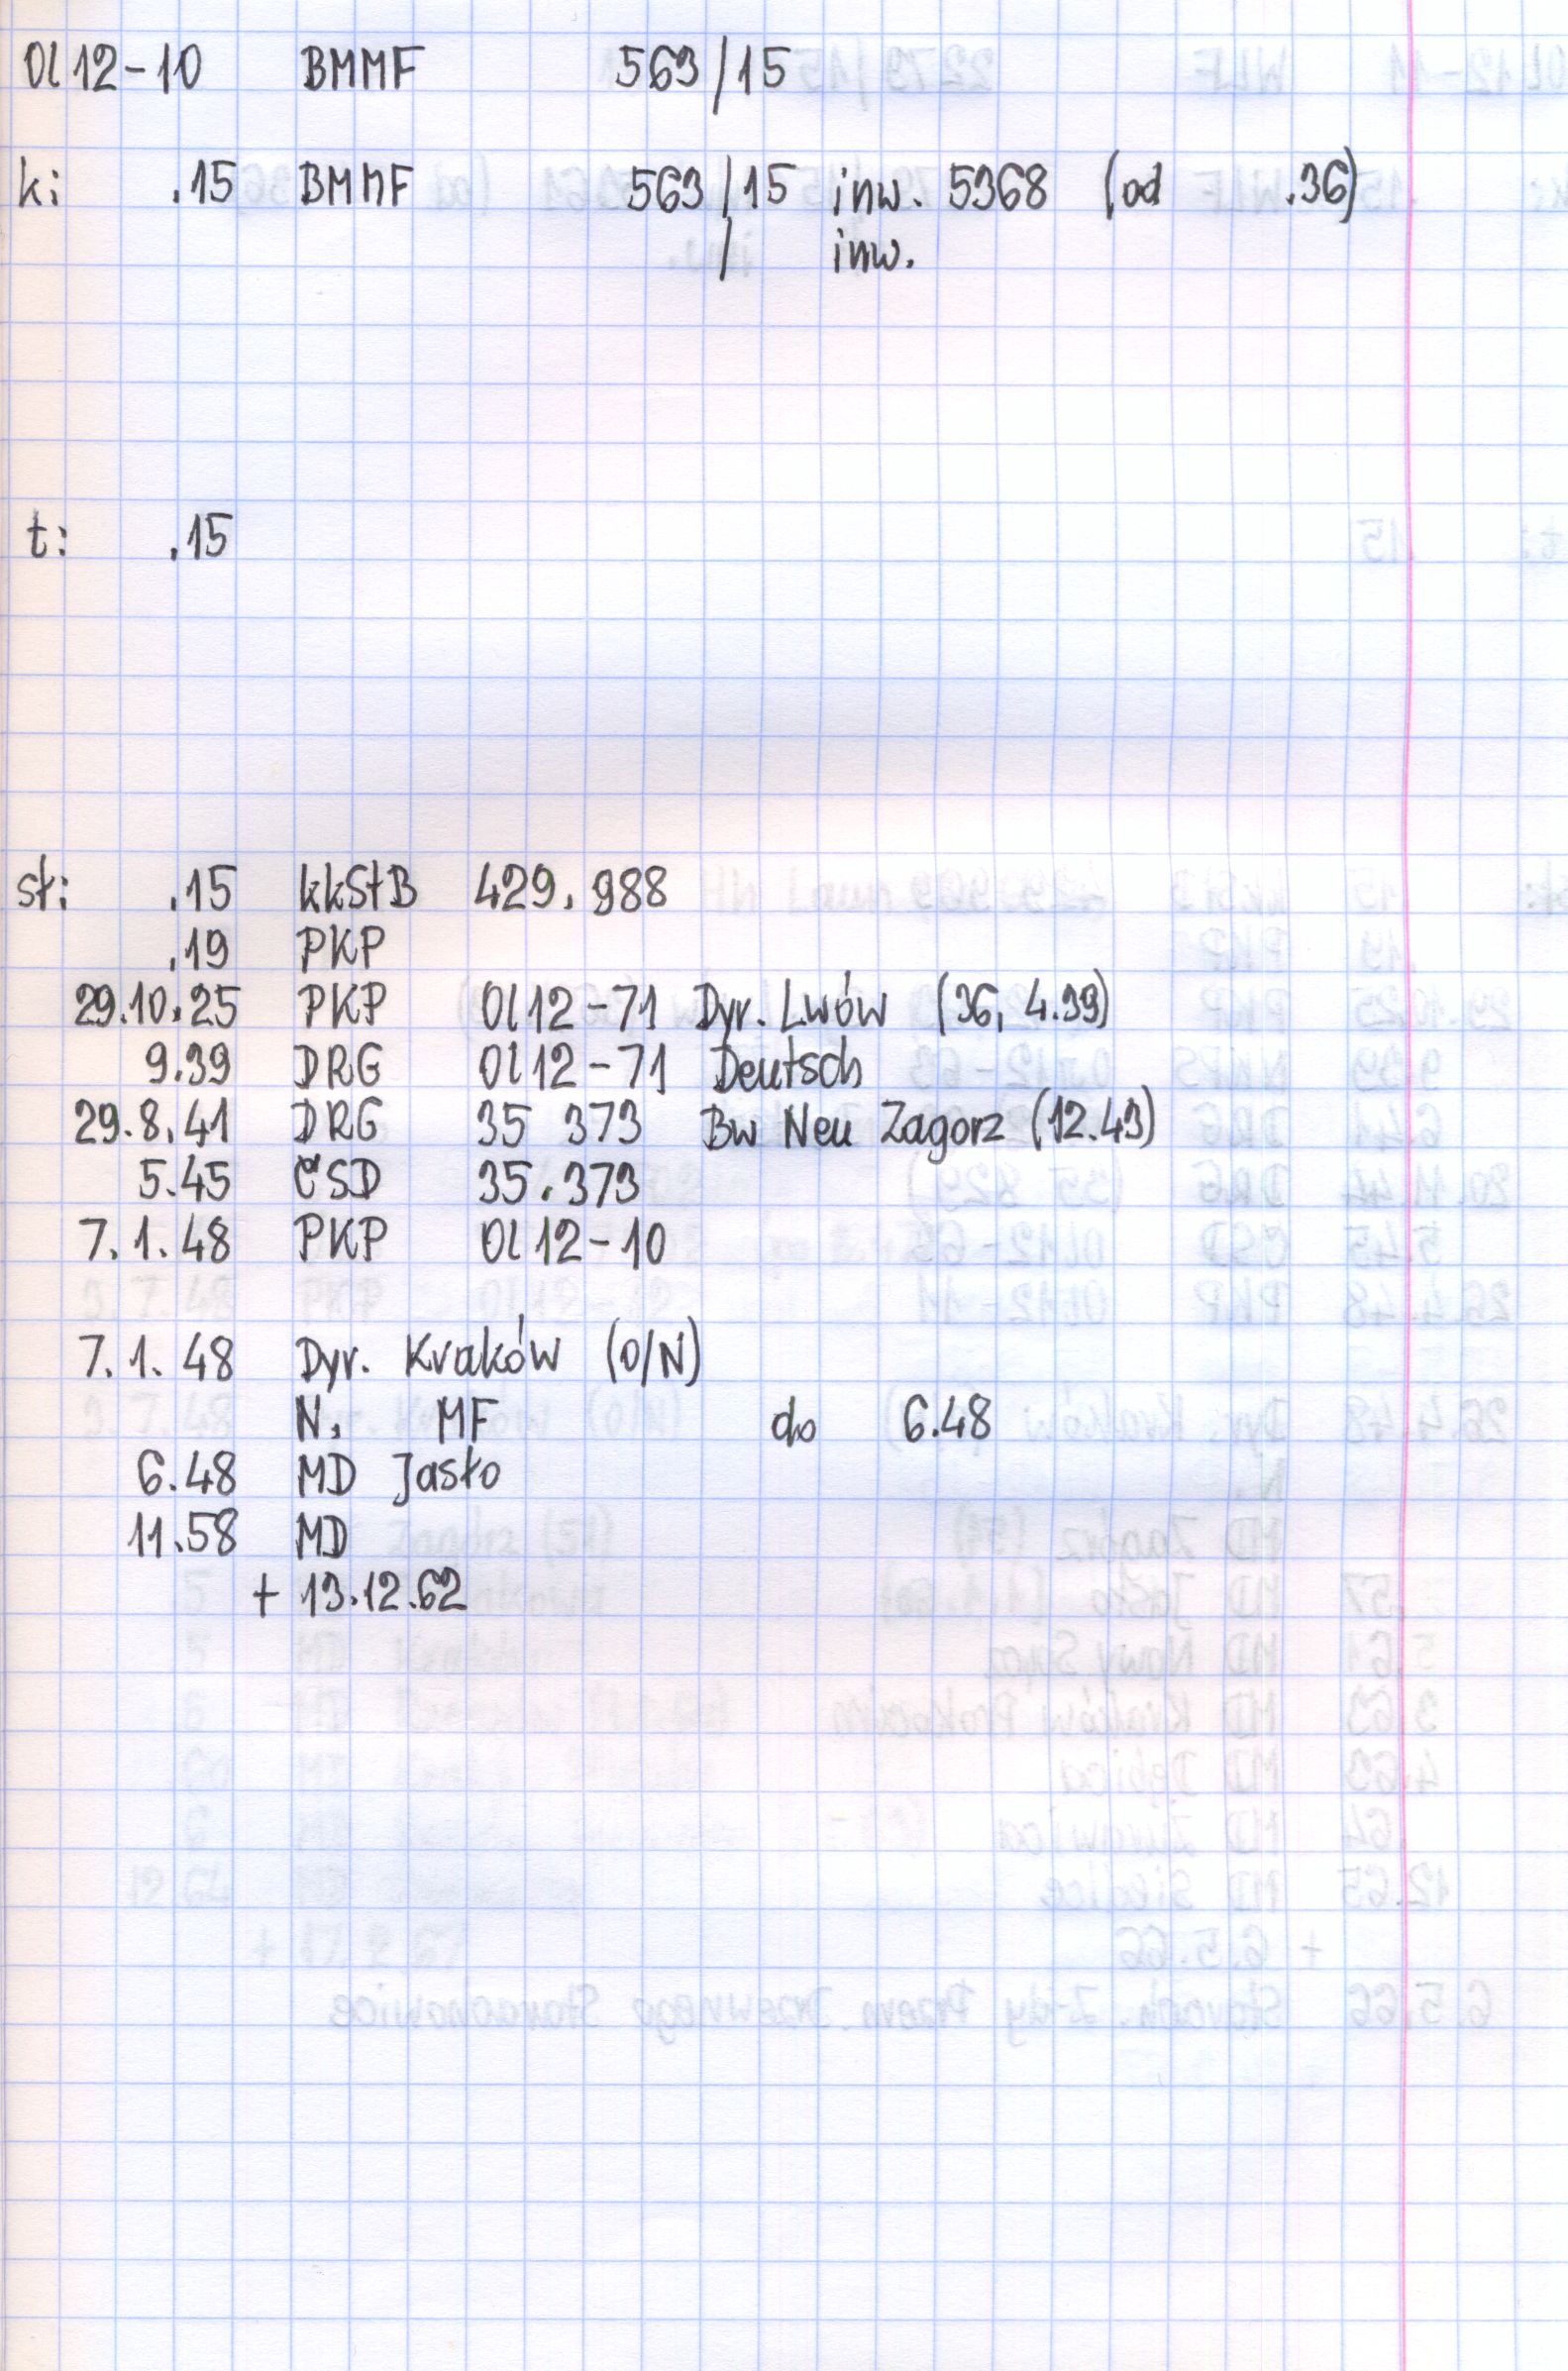 Ol12-10 BMMF 563/15
k: .15 BMMF 563/15 inw. 5368 (od .36)
/ inw.
t: .15
st: .15 kkStB 429.988
.19 PKP
29.10.25 PKP Ol12-71 Dyr. Lwów (36, 4.39)
9.39 DRG Ol12-71 Deutsch
29.8.41 DRG 35 373 Bw Neu Zagorz (12.43)
5.45 ČSD 35.373
7.1.48 PKP Ol12-10
7.1.48 Dyr. Kraków (O/N)
N. MF do 6.48
6.48 MD Jasło
11.58 MD
+ 13.12.62